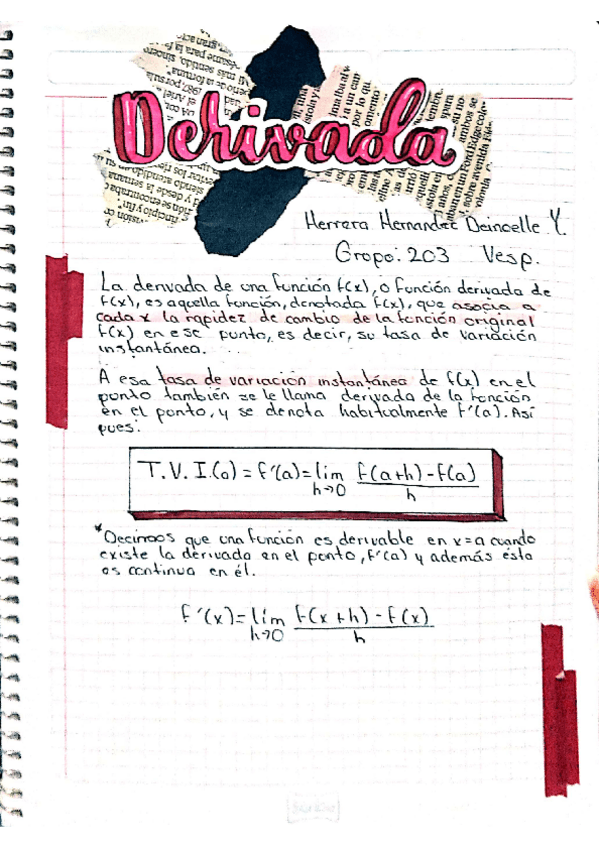 Derivada
Herrera Hernandez Deincelle Y.
Grupo: 203 Vesp.
La derivada de una función f(x), o función derivada de
f(x), es aquella función, denotada f(x), que asocia a
cada x la rapidez de cambio de la función original
f(x) en ese punto, es decir, su tasa de variación
instantánea.
A esa tasa de variación instantánea de f(x) en el
punto también se le llama derivada de la función
en el punto, y se denota habitualmente f'(a). Así
pues:
T.V.I.(a) = f'(a) = lím f(a+h) - f(a)
h→0 h
*Decimos que una función es derivable en x=a cuando
existe la derivada en el punto, f'(a) y además ésta
es continua en él.
f'(x) = lím f(x+h) - f(x)
h→0 h